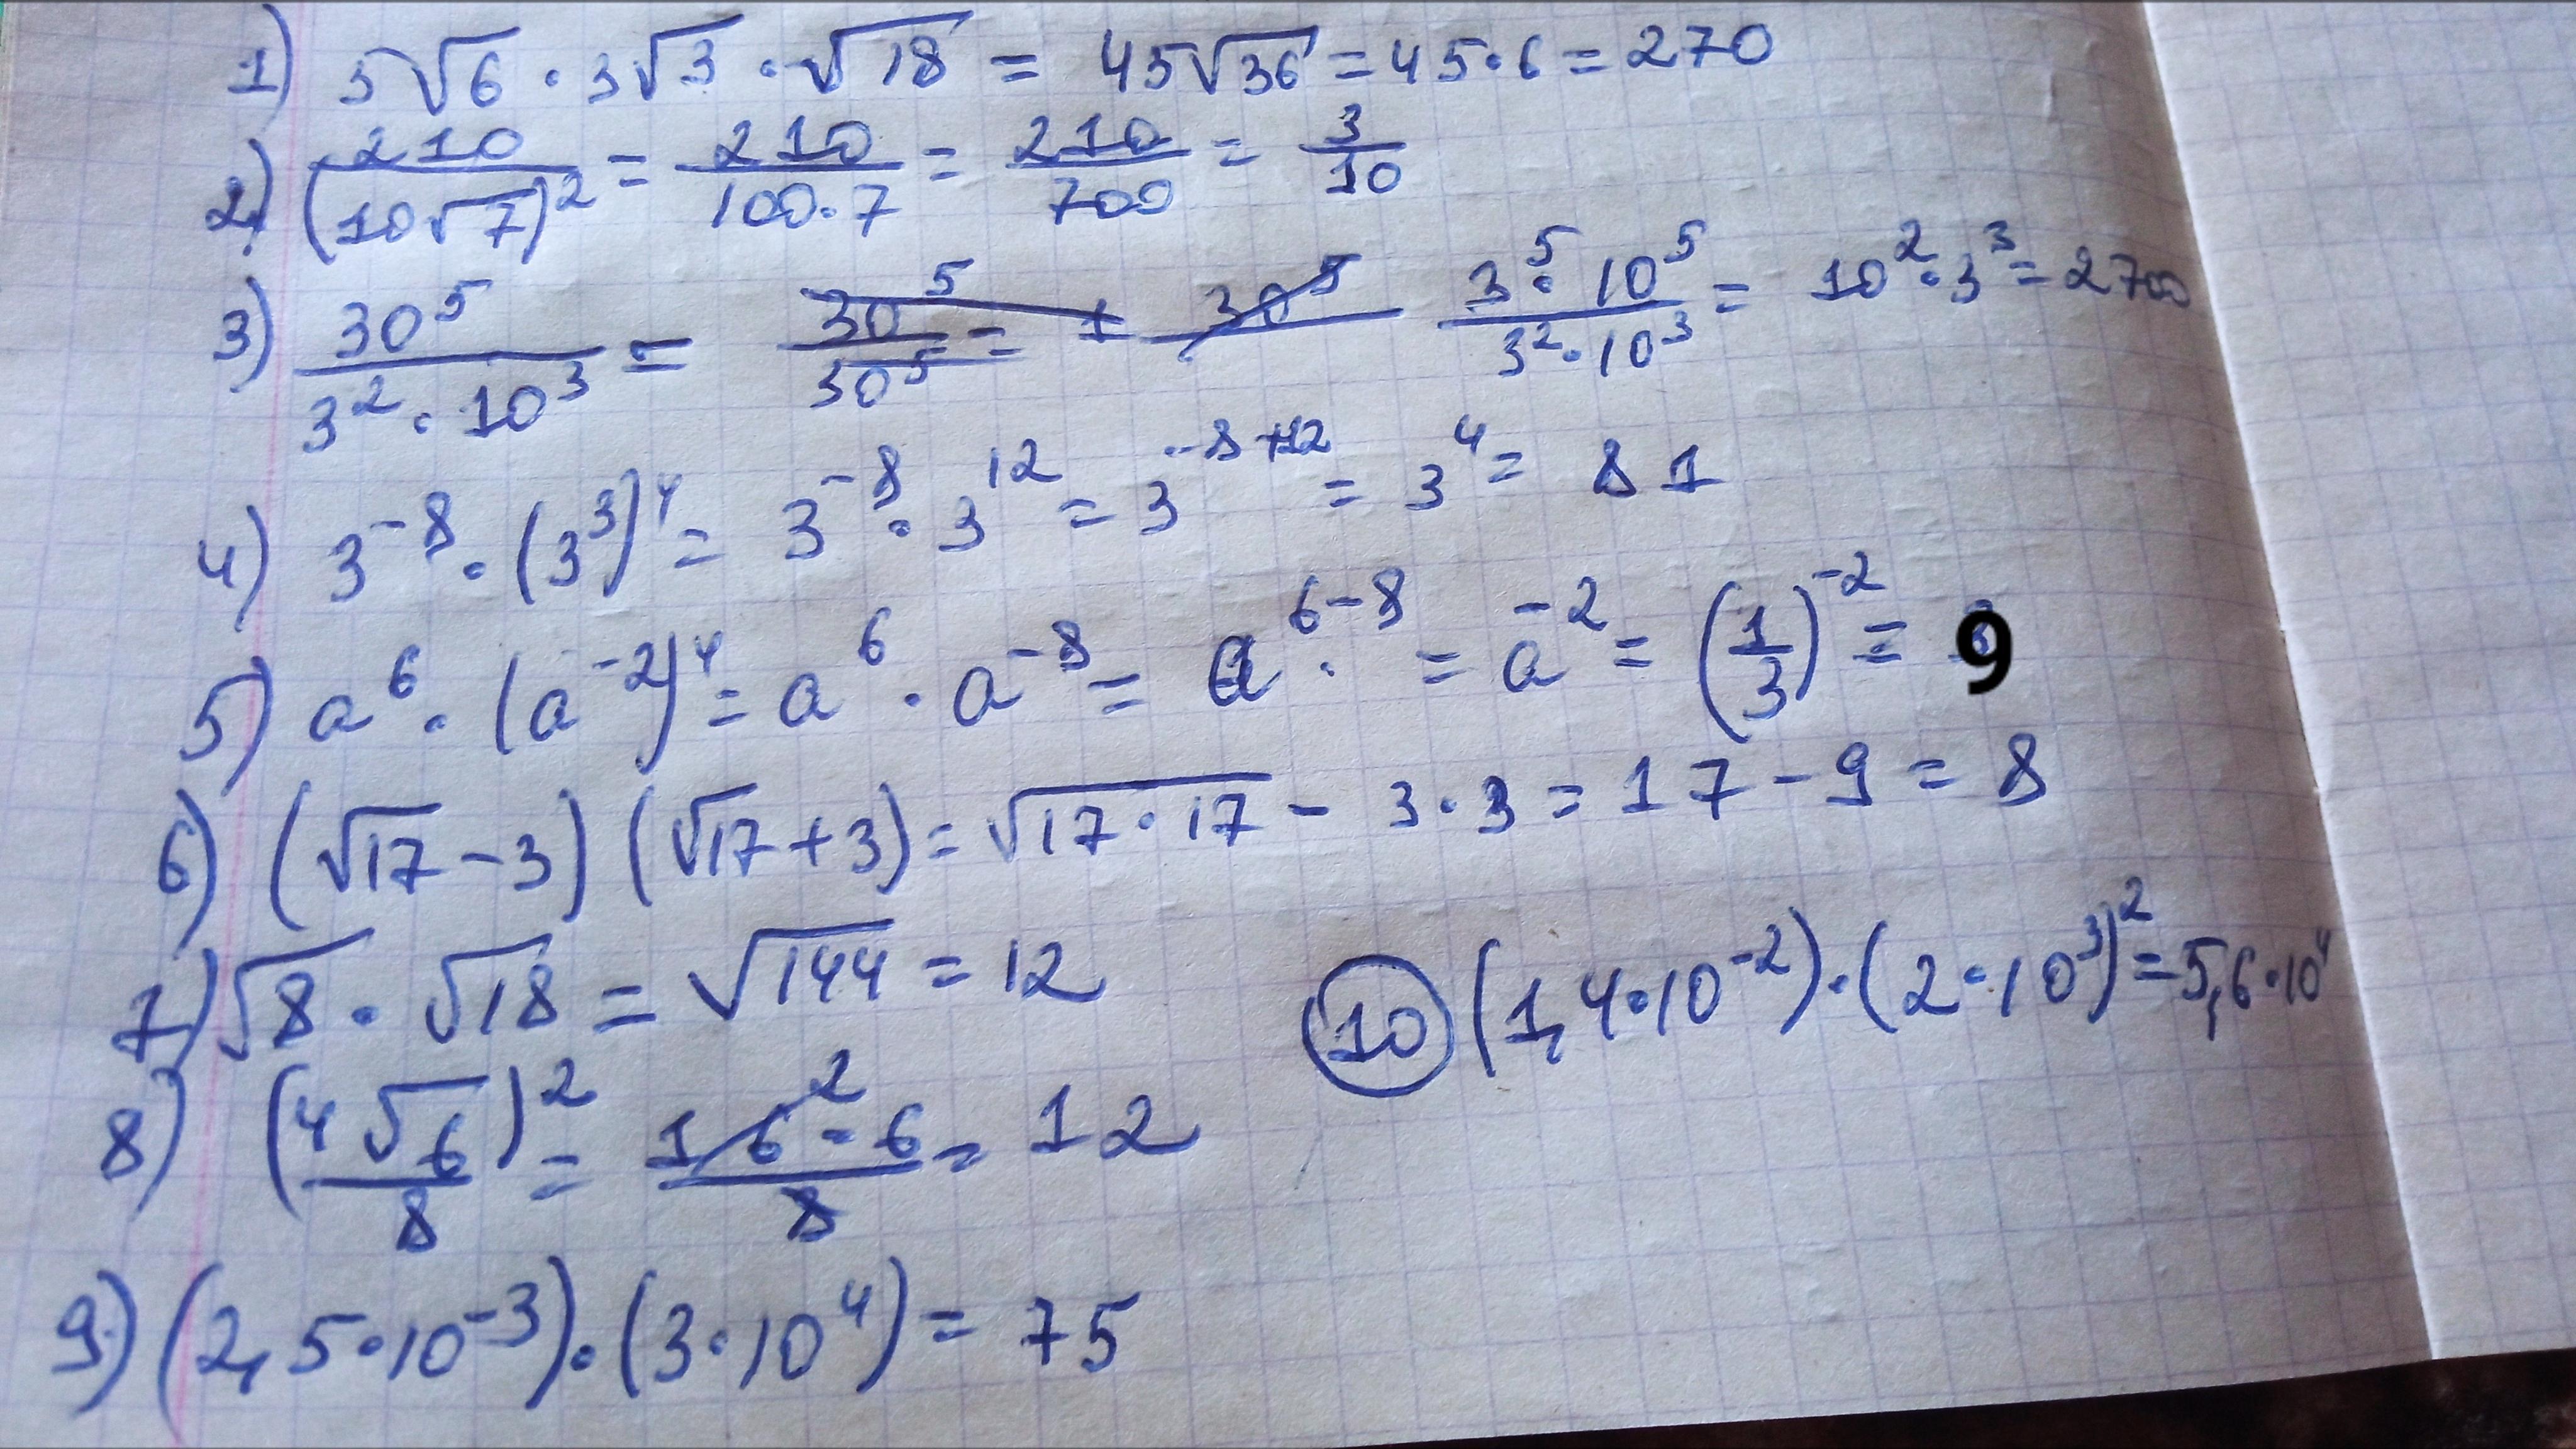 1) 5√6 · 3√3 · √18 = 45√36 = 45·6 = 270
2) 210/(10√7)² = 210/(100·7) = 210/700 = 3/10
3) 30⁵/(3²·10³) = 30⁵/30⁵ = 1 30⁵ (3⁵·10⁵)/(3²·10³) = 10²·3³ = 2700
4) 3⁻⁸·(3³)⁴ = 3⁻⁸·3¹² = 3⁻⁸⁺¹² = 3⁴ = 81
5) a⁶·(a⁻²)⁴ = a⁶·a⁻⁸ = a⁶⁻⁸ = a⁻² = (1/3)⁻² = 9
6) (√17 − 3)(√17 + 3) = √17·17 − 3·3 = 17 − 9 = 8
7) √8 · √18 = √144 = 12
10 (1,4·10⁻²)·(2·10³)² = 5,6·10⁴
8) (4√6)²/8 = 16²·6/8 = 12
9) (2,5·10⁻³)·(3·10⁴) = 75